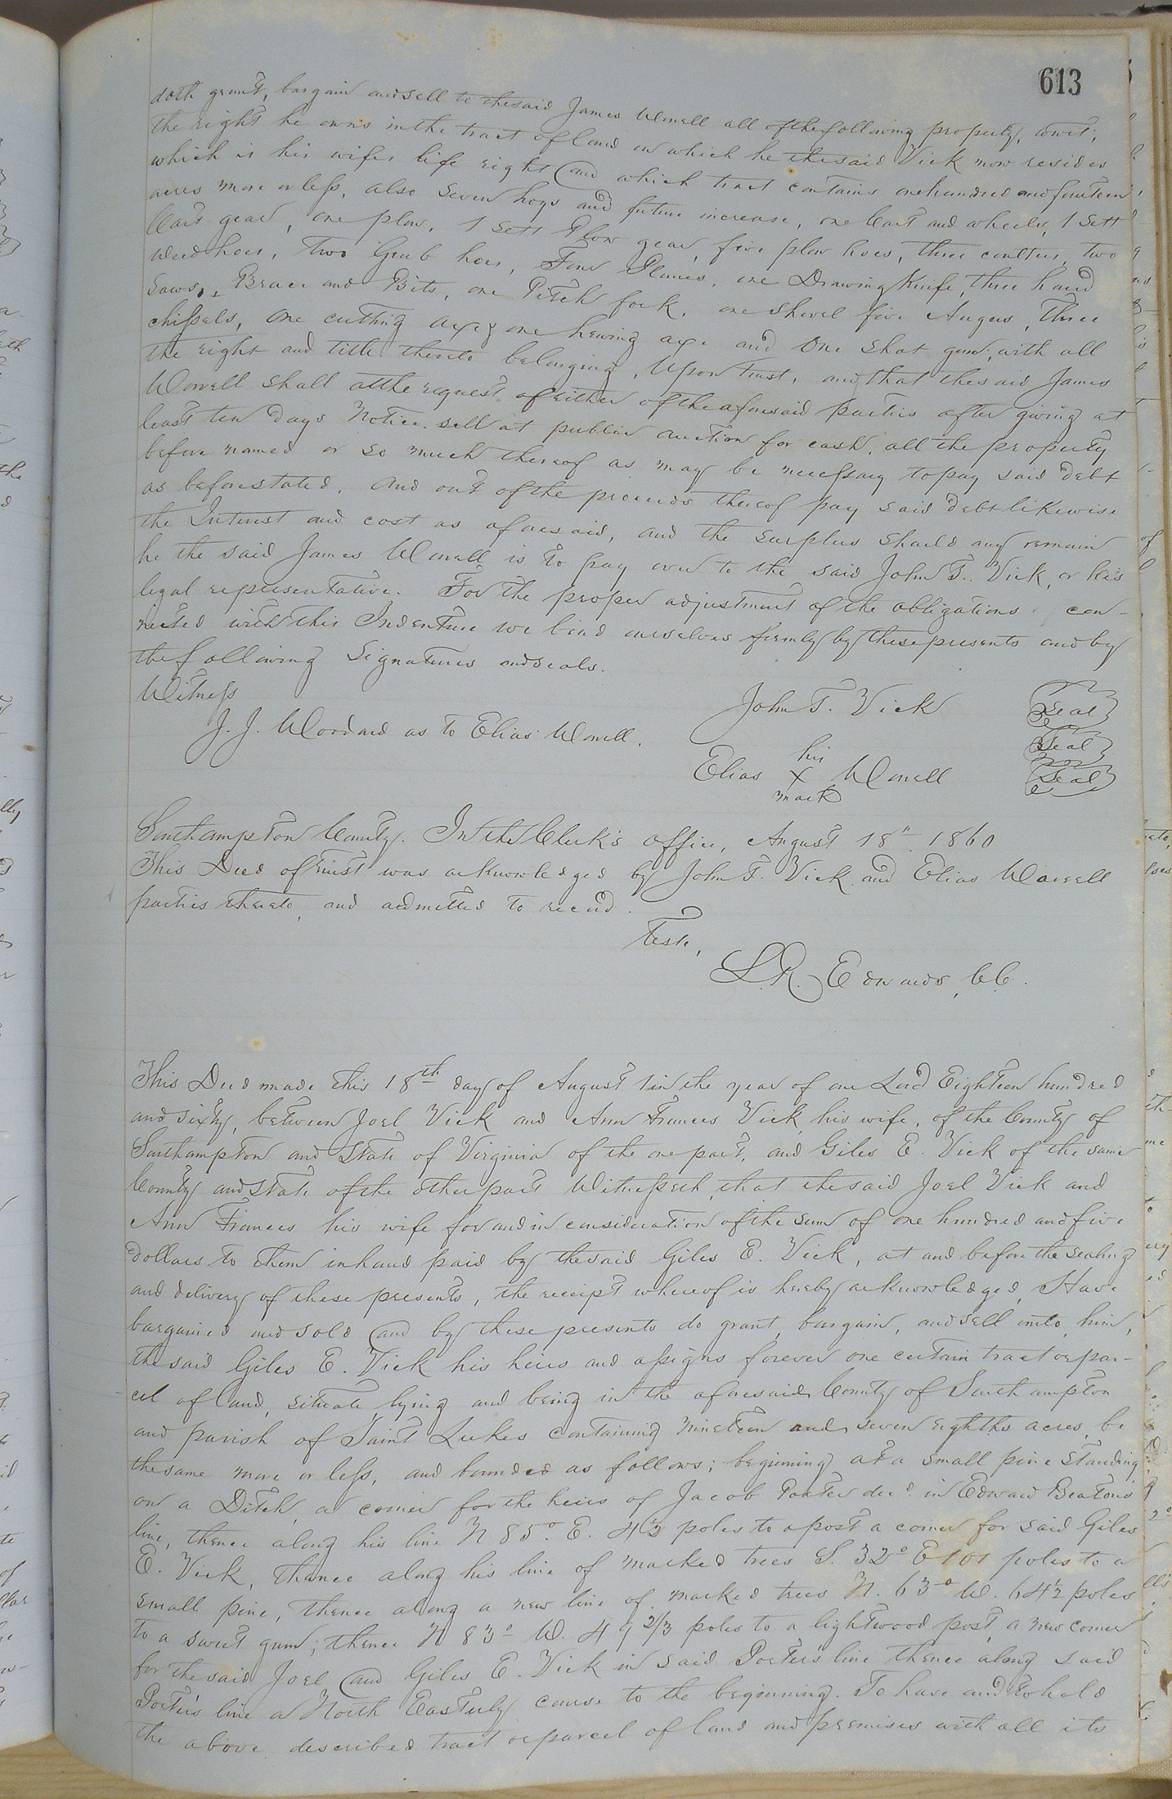 613
doth grant, bargain and sell to the said James Worrell all of the following property, towit;
the right he owns in the tract of land on which he the said Vick now resides
which is his wifes life right and which tract contains one hundred and fourteen
acres more or less, also seven hogs and future increase, one Cart and wheels, 1 Sett
Cart gear, one plow, 1 Sett Plow gear, five plow hoes, three coulters, two
Weed hoes, Two Grub hoes, Four Planes, one Drawing Knife, three hand
Saws, Brace and Bits, one Pitch fork, one shovel five Augus, three
chissels, one cutting axe, one hewing axe and one shot gun, with all
the right and title thereto belonging, Upon trust, and that the said James
Worrell shall at the request of either of the aforesaid parties after giving at
least ten days Notice, sell at public auction for cash, all the property
before named or so much thereof as may be necessary to pay said debt
as before stated. And out of the proceeds thereof pay said debt likewise
the Interest and cost as aforesaid, and the surplus should any remain
he the said James Worrell is to pay over to the said John T. Vick, or his
legal representative. For the proper adjustment of the obligations con-
nected with this Indenture we bind ourselves firmly by these presents and by
the following Signatures and seals.
Witness
J. J. Woodard as to Elias Worrell.
John T. Vick Seal
Seal
his
Elias X Worrell Seal
mark
Southampton County. In the Clerk's office, August 18" 1860
This Deed of Trust was acknowledged by John T. Vick and Elias Worrell
parties thereto, and admitted to record.
Teste,
L. R. Edwards, C.C.
This Deed made this 18th day of August in the year of our Lord Eighteen hundred
and sixty, between Joel Vick and Ann Frances Vick his wife, of the County of
Southampton and State of Virginia of the one part, and Giles E. Vick of the same
County and State of the other part Witnesseth, that the said Joel Vick and
Ann Frances his wife for and in consideration of the sum of one hundred and five
dollars to them in hand paid by the said Giles E. Vick, at and before the sealing
and delivery of these presents, the receipt whereof is hereby acknowledged, Have
bargained and sold and by these presents do grant, bargain, and sell unto him,
the said Giles E. Vick his heirs and assigns forever one certain tract or par-
cel of land, situate lying and being in the aforesaid County of Southampton
and parish of Saint Lukes containing nineteen and seven eighths acres, be
the same more or less, and bounded as follows; beginning at a small pine standing
on a Ditch, a corner for the heirs of Jacob Porter decd in Edward Beatons
line, thence along his line N 85° E. 43 poles to a post a corner for said Giles
E. Vick, thence along his line of marked trees S. 32° E 101 poles to a
small pine, thence along a new line of marked trees N. 63° W. 64½ poles
to a sweet gum; thence N 83° W. 49 2/3 poles to a lightwood post, a new corner
for the said Joel and Giles E. Vick in said Porter's line thence along said
Porter's line a North Easterly course to the beginning. To have and to hold
the above described tract or parcel of land and premises with all its